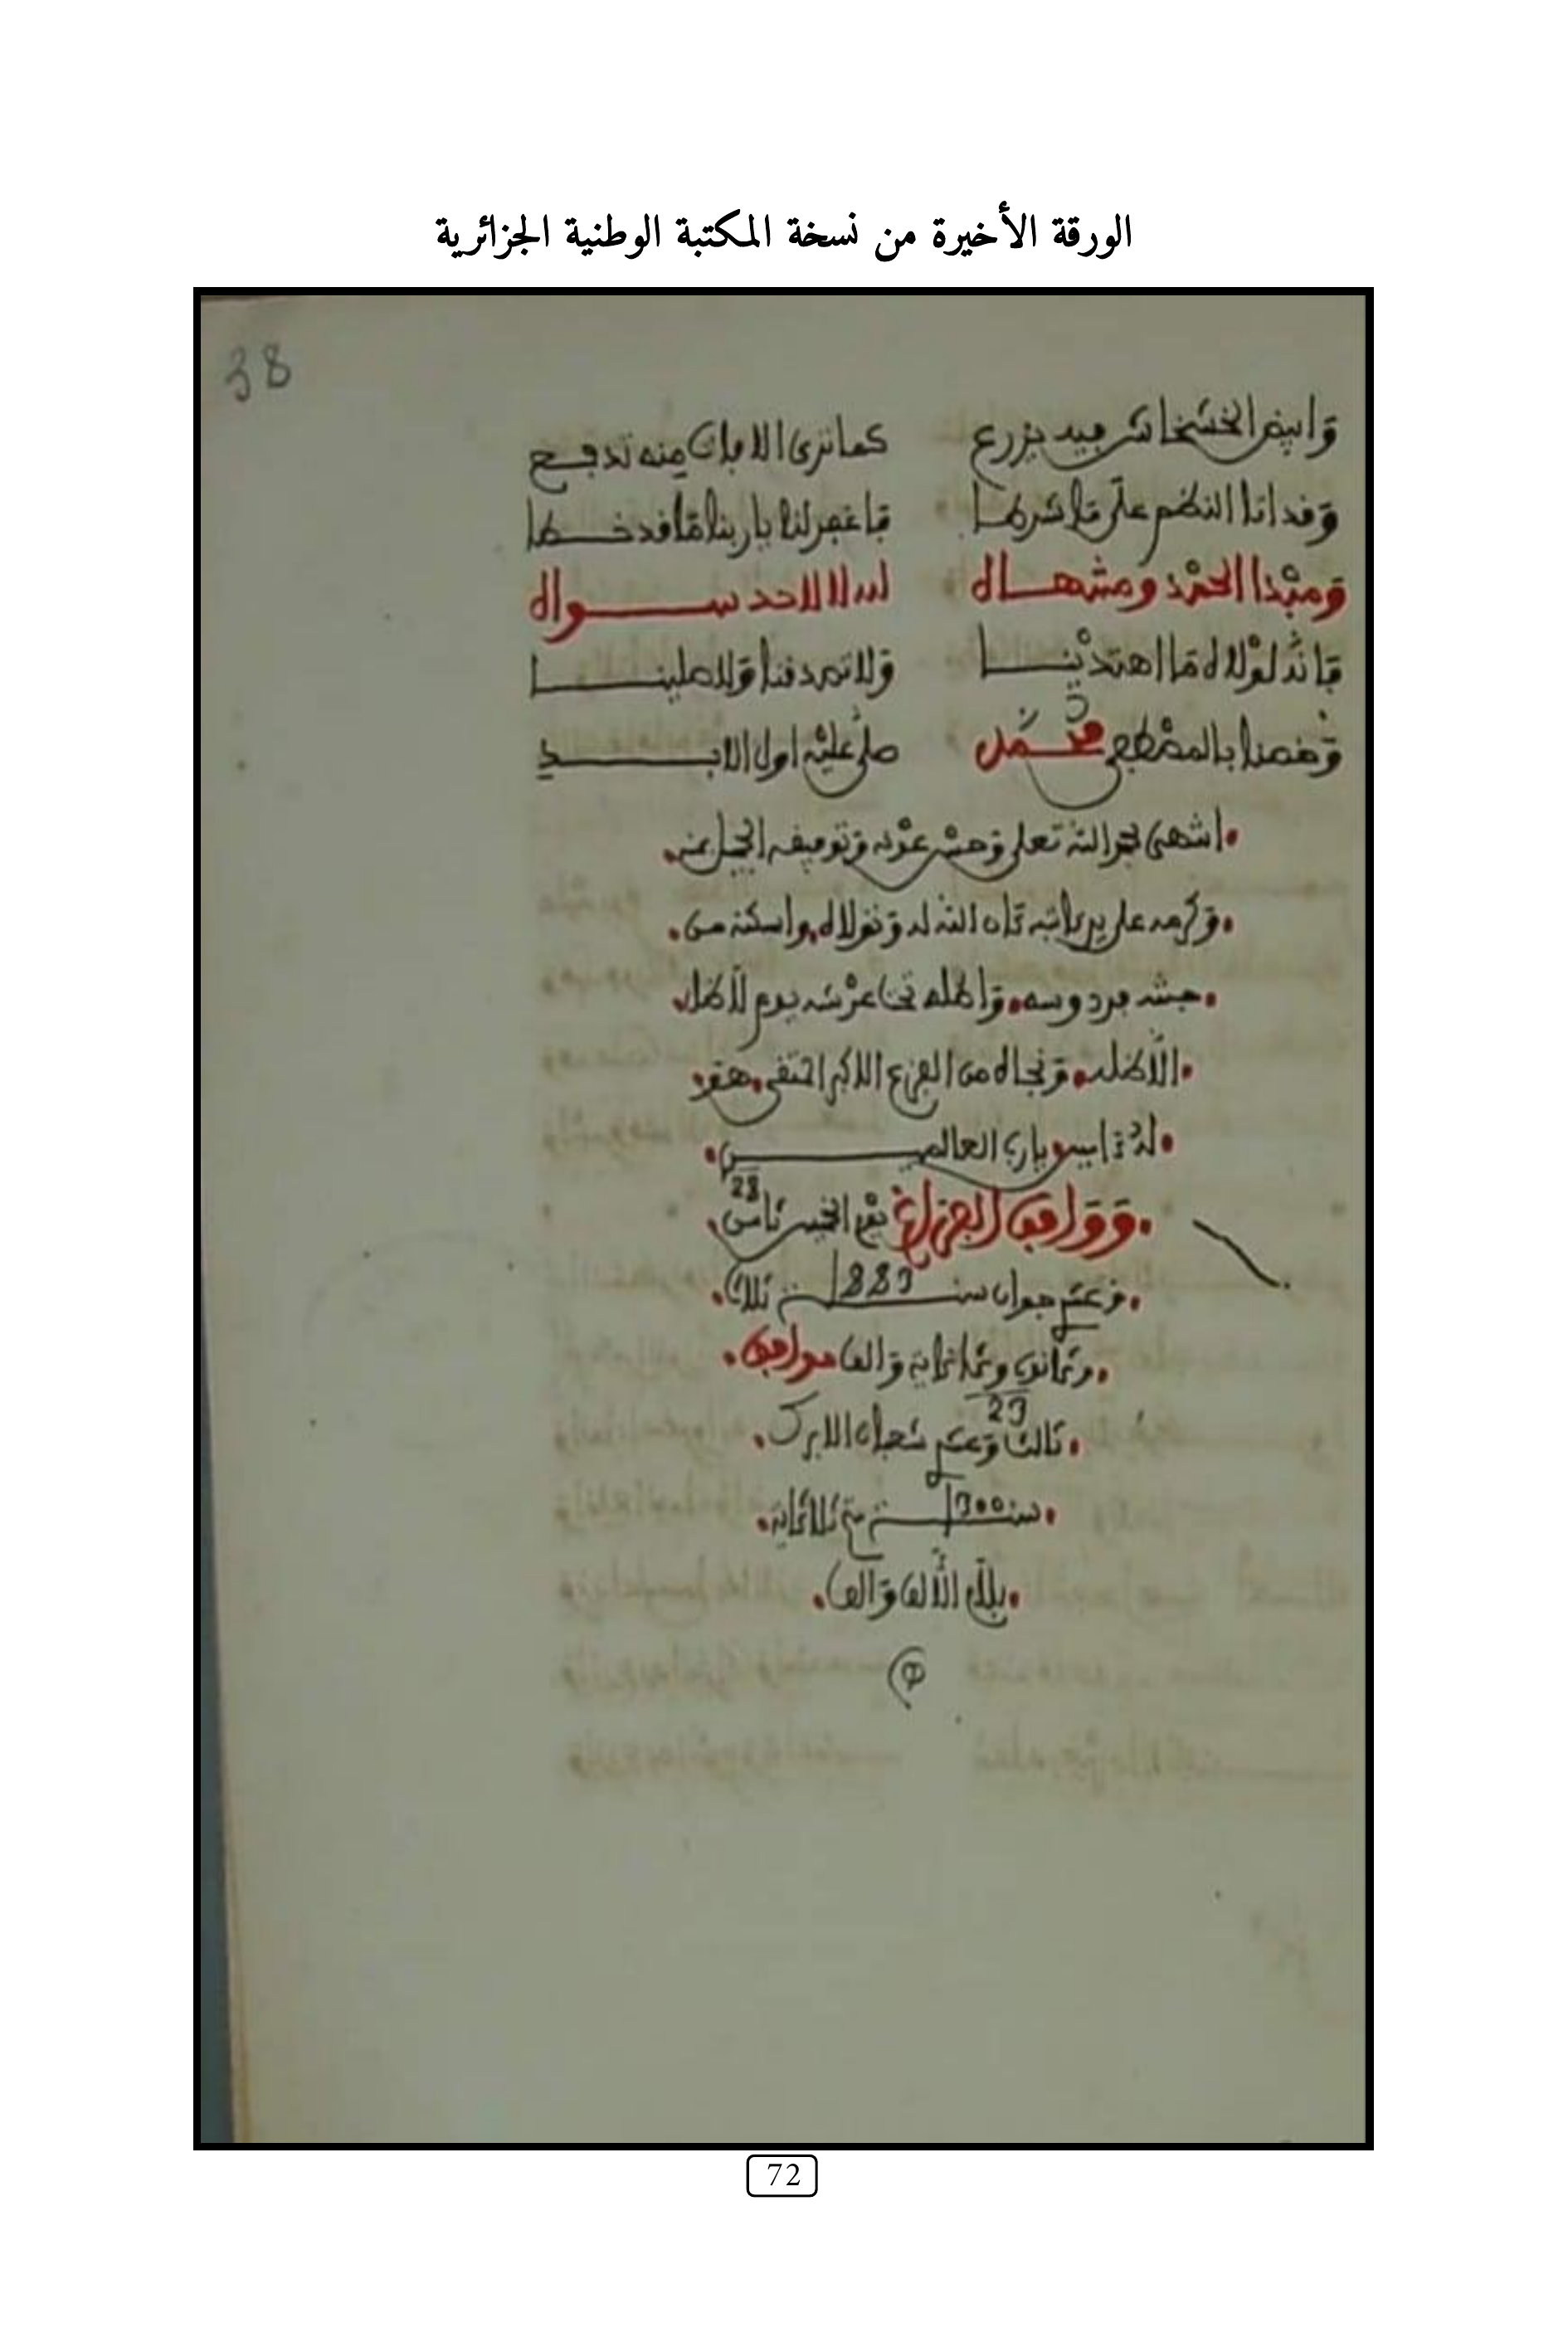 الورقة الأخيرة من نسخة المكتبة الوطنية الجزائرية
38
وابيض الخشخاش فيه يزرع كما ترى الافات منه تدفع
وقد اتا النظم على ما شرطا فاغفر لنا يا ربنا ما قد خطا
ومبدا الحمد ومنتهاه لله لا لاحد سواه
فانه لولاه ما اهتدينا ولا تصدقنا ولا صلينا
وخصنا بالمصطفى محمد صلى عليه اول الابد
انتهى بحمد الله تعلى وحسن عونه وتوفيقه الجميل بمنه
وكرمه على يد كاتبه كان الله له وتولاه واسكنه من
جنته فردوسه واظله تحت عرشه يوم لا ظل
الا ظله ونجاه من الفزع الاكبر
امين يارب العالمين
ووافق الفراغ يوم الخميس ثامن 28
وعشر جوان سنة 1883 ثلاث
وثمانون وثمانماية والف موافق
ثالث وعشر 23 شعبان الابرك
سنة 1300 ثلاثماية
بلام الالف والف
72